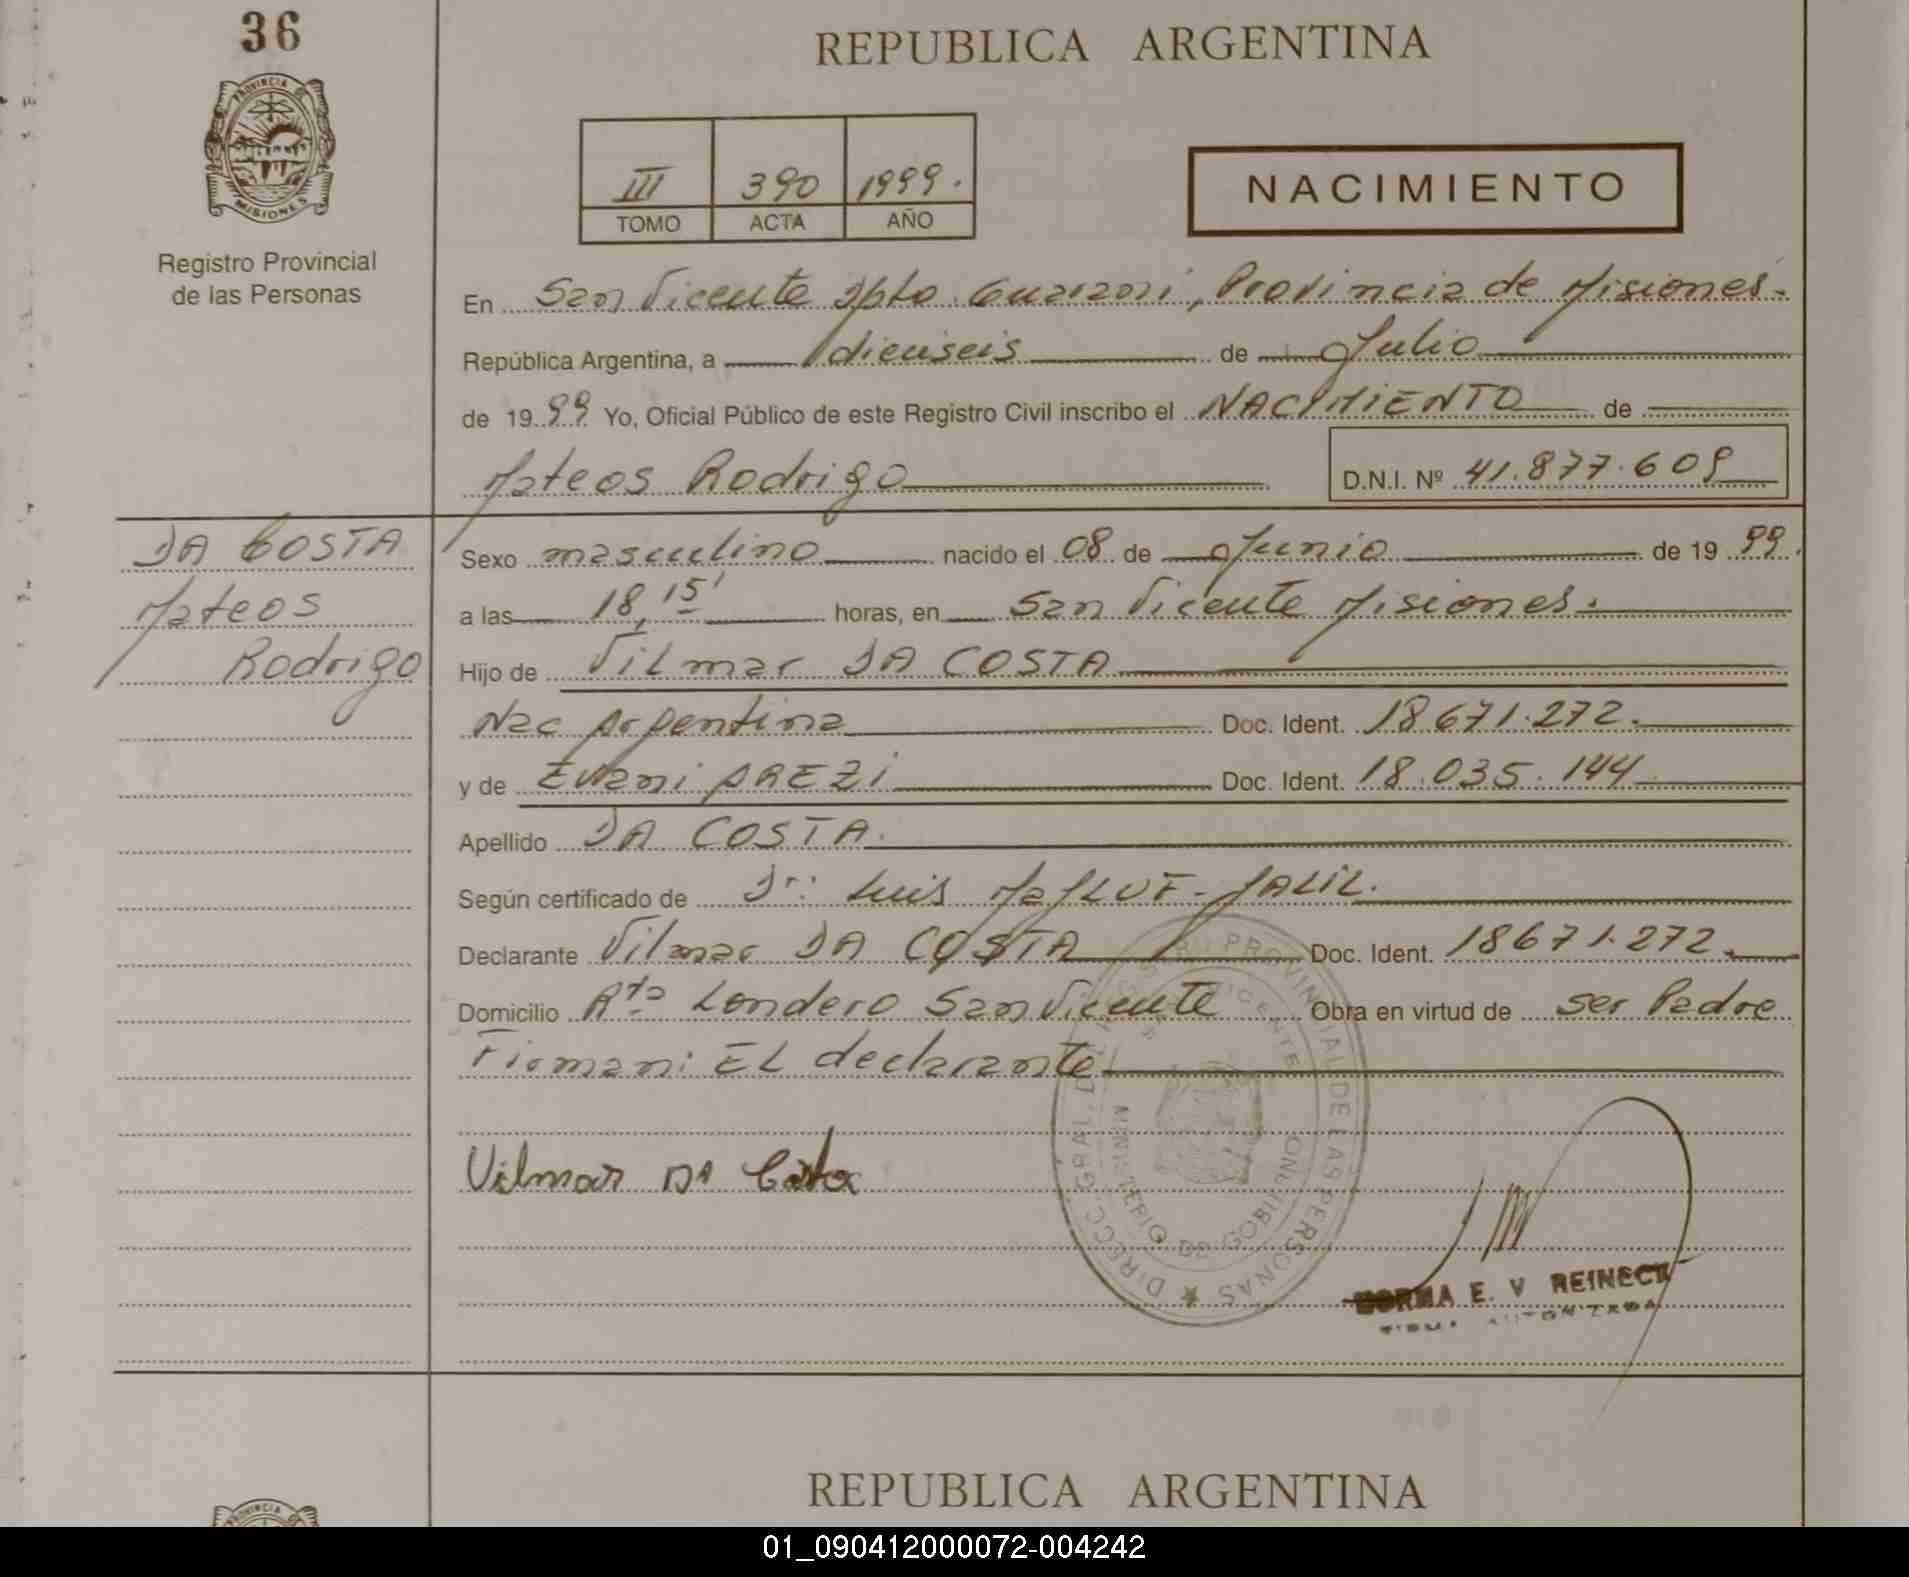 36
REPUBLICA ARGENTINA
PROVINCIA DE
MISIONES
Registro Provincial
de las Personas
III 390 1999.
TOMO ACTA AÑO
NACIMIENTO
En San Vicente Dpto. Guarani, Provincia de Misiones.
República Argentina, a dieciseis de Julio
de 1999 Yo, Oficial Público de este Registro Civil inscribo el NACIMIENTO de
Mateos Rodrigo D.N.I. Nº 41.877.609
DA COSTA
Mateos
Rodrigo
Sexo masculino nacido el 08 de Junio de 1999.
a las 18,15' horas, en San Vicente Misiones.
Hijo de Vilmar DA COSTA
Nac Argentina Doc. Ident. 18.671.272.
y de Evani AREZI Doc. Ident. 18.035.144
Apellido DA COSTA.
Según certificado de Dr: Luis JALIL.
Declarante Vilmar DA COSTA Doc. Ident. 18671.272.
Domicilio Rta Londero San Vicente Obra en virtud de ser Padre
Firman: EL declarante
Vilmar DA Costa
DIRECC. GRAL. DEL REGISTRO PROVINCIAL DE LAS PERSONAS
MINISTERIO DE GOBIERNO
NORMA E. V REINECK
FIRMA AUTORIZADA
REPUBLICA ARGENTINA
PROVINCIA
01_090412000072-004242